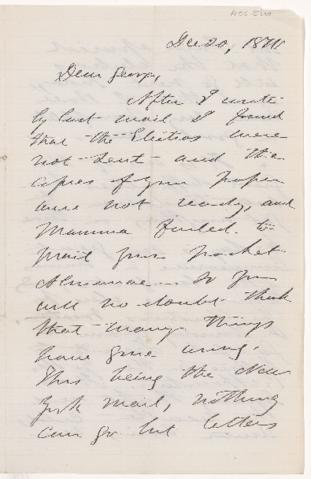 Dec 20, 1871
Dear George,
After I wrote
by last mail I found
that the Elections were
not sent and the
copies of your paper
were not ready, and
Mamma failed to
mail your pocket
Almanac. So you
will no doubt think
that many things
have gone wrong.
This being the New
York mail, nothing
can go but letters